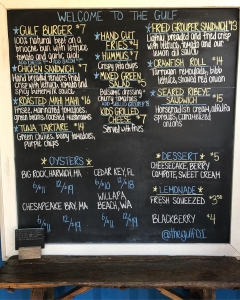 WELCOME TO THE GULF
GULF BURGER $7
100% natural beef on a
brioche bun with lettuce
tomato and garlic
CHICKEN SANDWICH
Hand breaded tenders fried
crisp with lettuce tomato and
spicy buttermilk sauce
ROASTED MAHI MAHI $16
Roasted mini tomatoes,
green beans, roasted mushrooms
TUNA TARTARE $14
Green chilies, baby tomatoes,
purple chips
HAND CUT
FRIES $4
HUMMUS $7
Crispy pita chips
MIXED GREEN
SALAD
Balsamic dressing
Cherry tomatoes
KIDS GRILLED
CHEESE $7
Served with fries
FRIED GROUPER SANDWICH $13
Lightly breaded and fried crisp
with lettuce tomato and our
sauce
CRAWFISH ROLL $14
Tarragon remoulade, bibb
lettuce, shredded radish
SEARED RIBEYE
SANDWICH $15
Horseradish cream, alfalfa
sprouts, caramelized
onions
OYSTERS
BIG ROCK, HARWICH, MA
6/$11 12/$19
CEDAR KEY, FL
6/$10 12/$18
CHESAPEAKE BAY, MA
6/$11
WILLAPA
BEACH, WA
DESSERT $5
CHEESECAKE, BERRY
COMPOTE, SWEET CREAM
LEMONADE
FRESH SQUEEZED $3.50
BLACKBERRY $4
@thegulf01